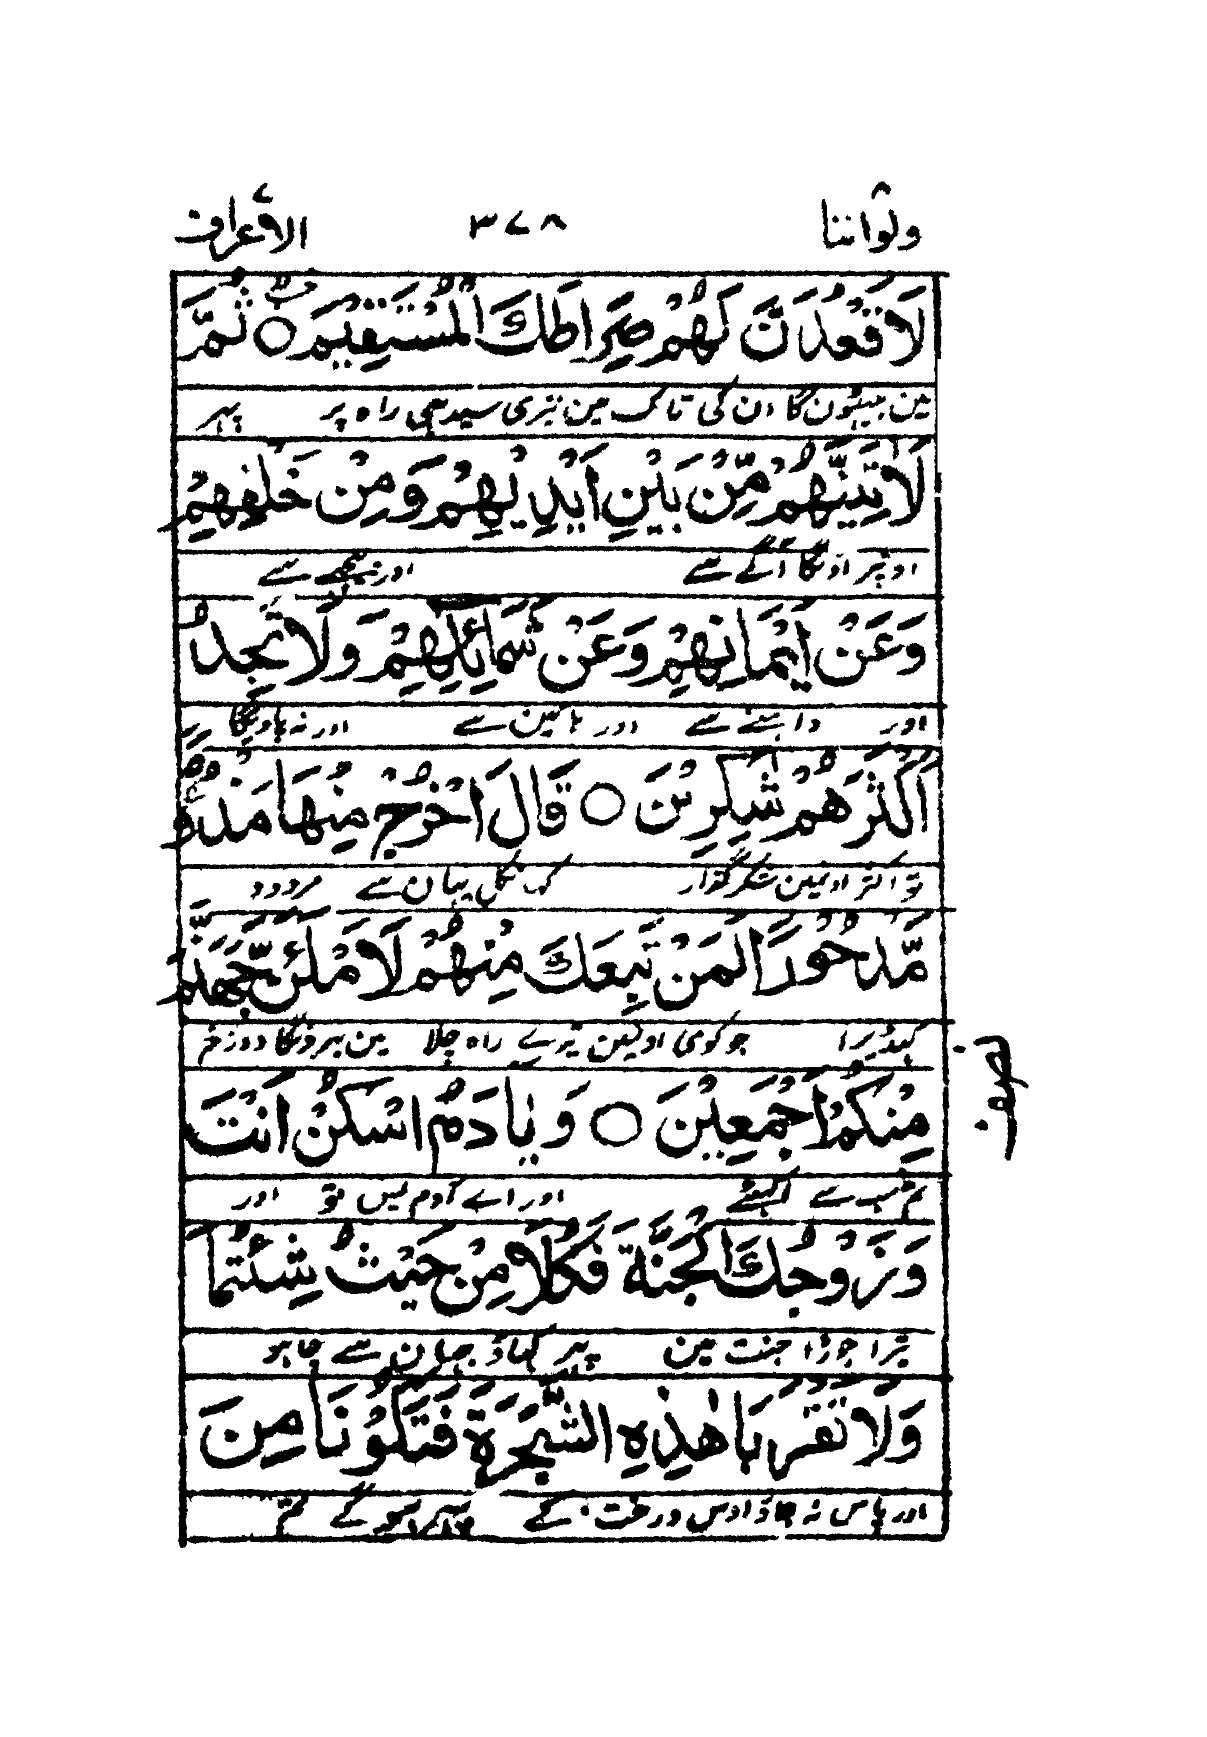 ولواننا ۸ ۳۷۸ الاعراف ۷
لَاَقْعُدَنَّ لَهُمْ صِرَاطَكَ الْمُسْتَقِيْمَ ○ ثُمَّ
مین بیٹہون گا ان کی تاک مین تیری سیدھی راہ پر پہر
لَاٰتِيَنَّهُمْ مِّنْۢ بَيْنِ اَيْدِيْهِمْ وَمِنْ خَلْفِهِمْ
اونپر آونگا آگے سے اور پیچھے سے
وَعَنْ اَيْمَانِهِمْ وَعَنْ شَمَآئِلِهِمْ وَلَا تَجِدُ
اور داہنے سے اور بائین سے اور نہ پاویگا
اَكْثَرَهُمْ شٰكِرِيْنَ ○ قَالَ اخْرُجْ مِنْهَا مَذْءُوْمًا
تو اکثر اونمین شکرگذار کہا نکل یہان سے مردود
مَّدْحُوْرًا لَمَنْ تَبِعَكَ مِنْهُمْ لَاَمْلَئَنَّ جَهَنَّمَ
کہدیڑا جو کوئی اونمین تیرے راہ چلا مین بہرونگا دوزخ
مِنْكُمْ اَجْمَعِيْنَ ○ وَيٰاٰدَمُ اسْكُنْ اَنْتَ
تم سب سے اکہٹے اور اے آدم بس تو اور
وَزَوْجُكَ الْجَنَّةَ فَكُلَا مِنْ حَيْثُ شِئْتُمَا
تیرا جوڑا جنت مین پہر کہاؤ جہان سے چاہو
وَلَا تَقْرَبَا هٰذِهِ الشَّجَرَةَ فَتَكُوْنَا مِنَ
اور پاس نہ جاؤ اوس درخت کے پہر ہوگے تم